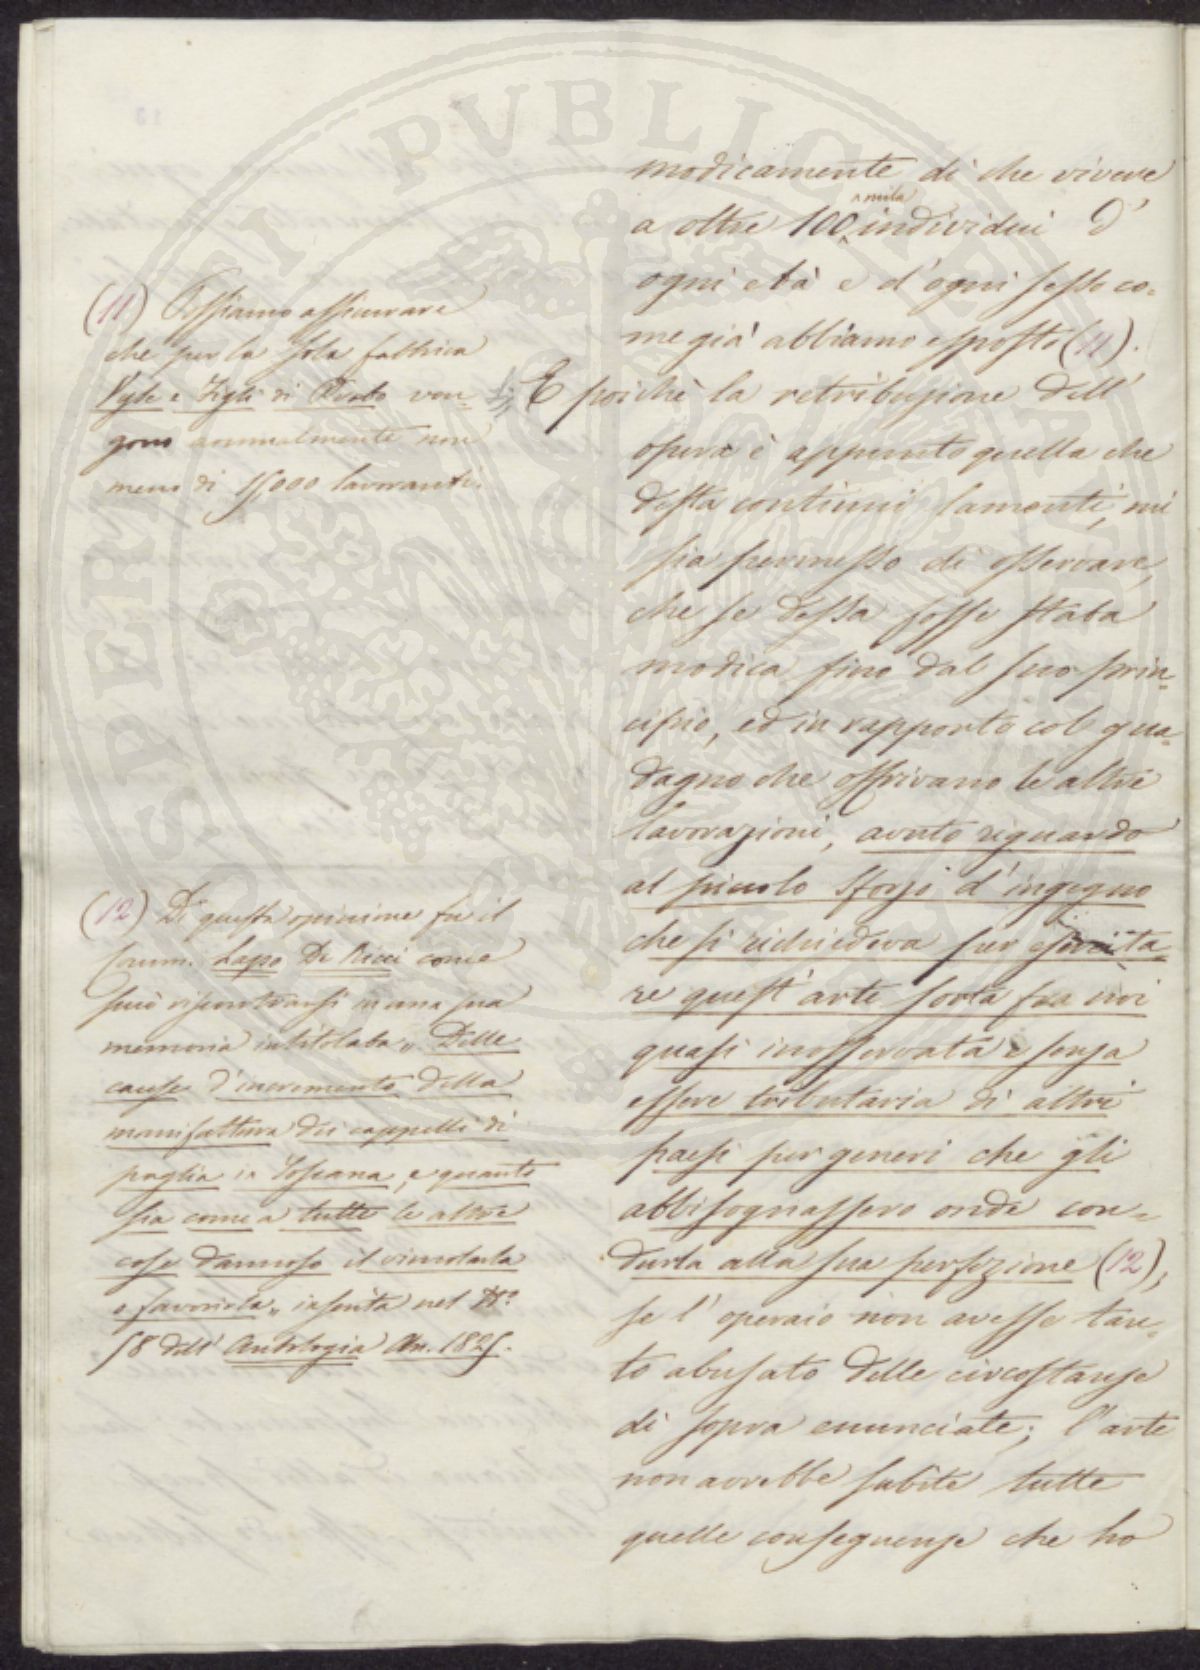 modicamente di che vivere
a oltre 100 mila individui d'
ogni età e d'ogni sesso co=
me già abbiamo esposto (11).
E poichè la retribuzione dell'
opera è appunto quella che
desta continui lamenti, mi
sia permesso di osservare,
che se dessa fosse stata
modica fino dal suo prin=
cipio, ed in rapporto col gua=
dagno che offrivano le altre
lavorazioni, avuto riguardo
al piccolo sforzo d'ingegno
che si richiedeva per esercita=
re quest'arte sorta fra noi
quasi inosservata e senza
essere tributaria di altri
paesi per generi che gli
abbisognassero onde con=
durla alla sua perfezione (12),
se l'operaio non avesse tan=
to abusato delle circostanze
di sopra enunciate; l'arte
non avrebbe subite tutte
quelle conseguenze che ho
(11) Possiamo assicurare
che per la sola fabbrica
Vyse e Figli di Prato ven=
gono annualmente non
meno di 15,000 lavoranti.
(12) Di questa opinione fu il
Comm. Lapo De Ricci come
può riscontrarsi in una sua
memoria intitolata „ Delle
cause d'incremento della
manifattura dei cappelli di
paglia in Toscana, e quanto
sia come a tutte le altre
cose dannoso il vincolarla
o favorirla „ inserita nel N.º
58 dell' Antologia An. 1825.
PUBLICAE